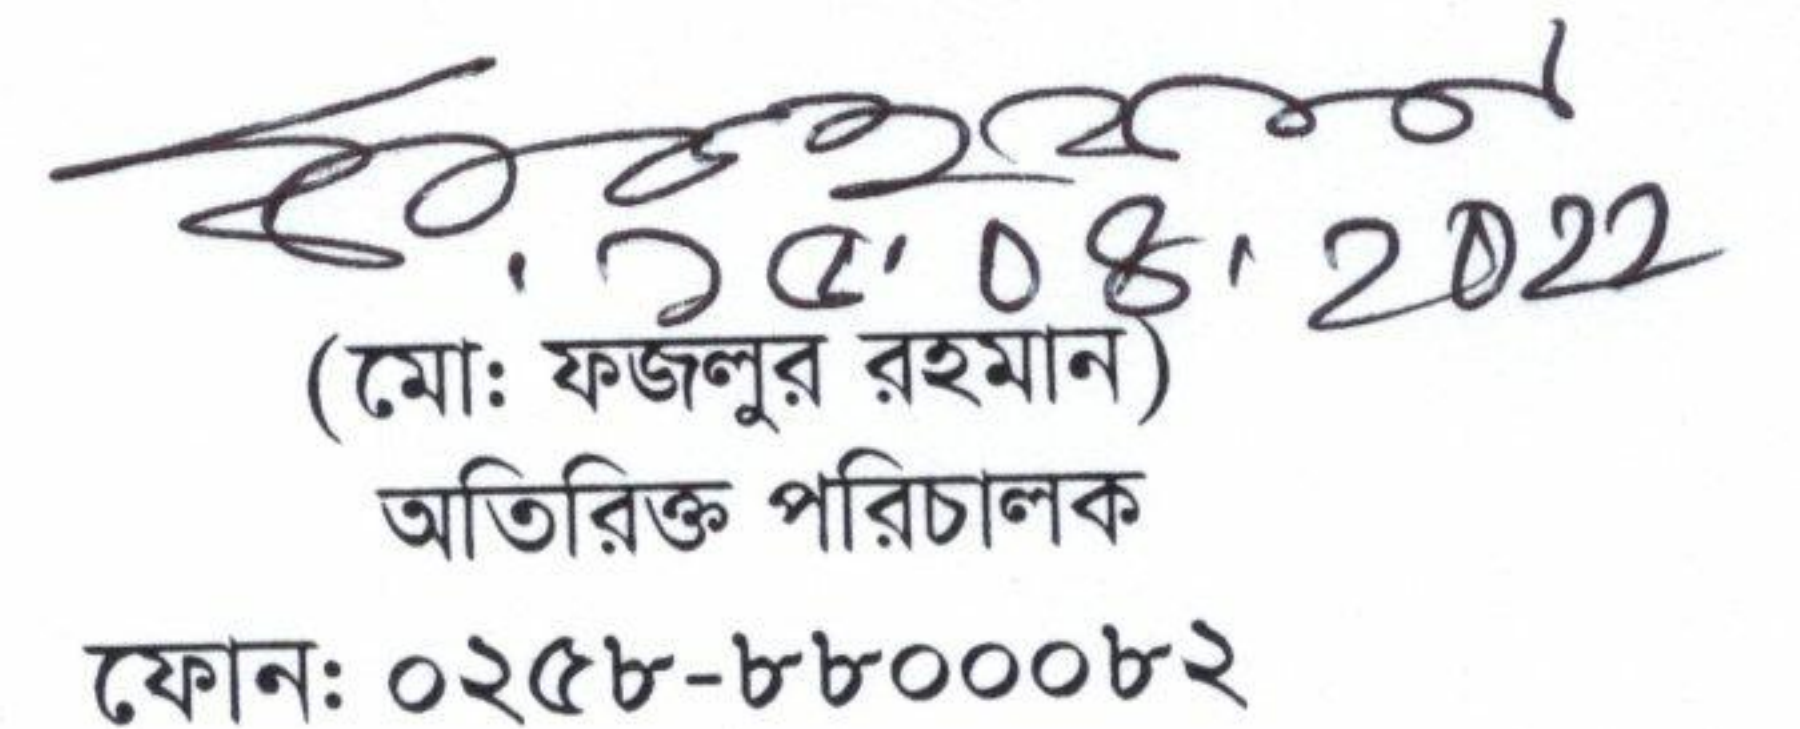 ১৫.০৪.২০২২
(মো: ফজলুর রহমান)
অতিরিক্ত পরিচালক
ফোন: ০২৫৮-৮৮০০০৮২